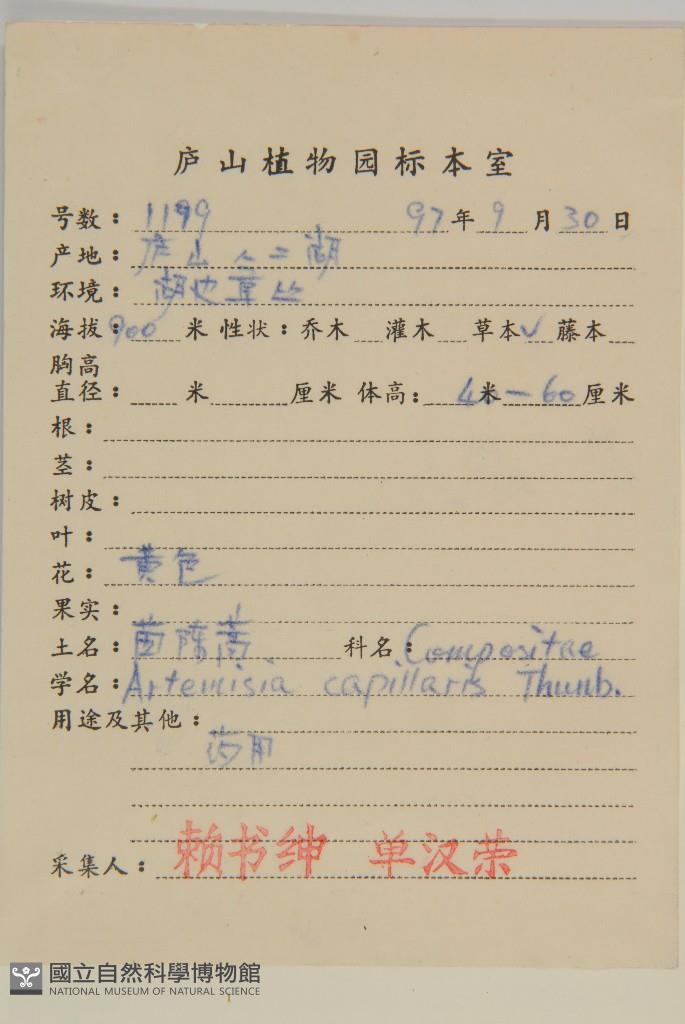 庐山植物园标本室
号数：1199 97年9月30日
产地：庐山人工湖
环境：湖边草丛
海拔：900米 性状：乔木 灌木 草本√ 藤本
胸高
直径： 米 厘米 体高：40米—60厘米
根：
茎：
树皮：
叶：
花：黄色
果实：
土名：茵陈蒿 科名：Compositae
学名：Artemisia capillaris Thunb.
用途及其他：
药用
采集人：赖书绅 单汉荣
國立自然科學博物館
NATIONAL MUSEUM OF NATURAL SCIENCE